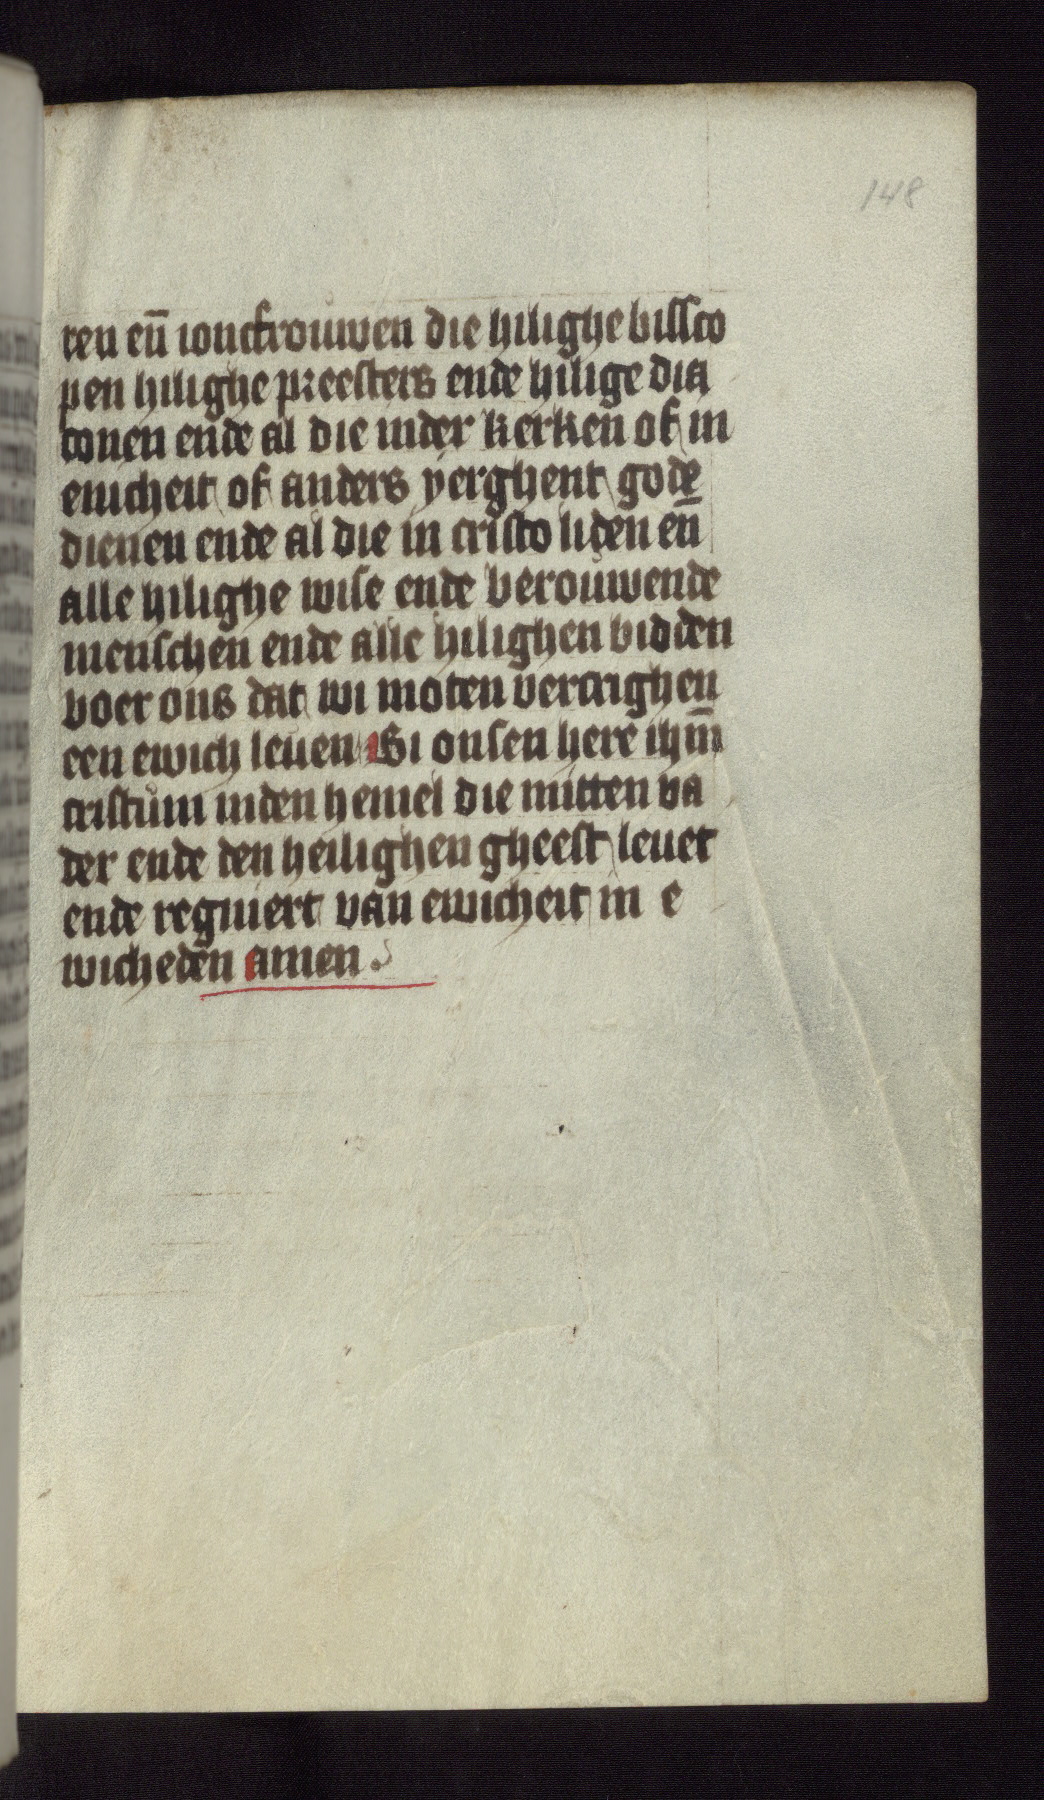 148
ren en̄ ioncfrouwen die hilighe bissco
pen hilighe preesters ende hilige dia
conen ende al die inder kerken of in
enicheit of anders yerghent gode
dienen ende al die in cristo liden en̄
alle hilighe wise ende berouwende
menschen ende alle hilighen bidden
voer ons dat wi moten vercrighen
een ewich leuen Bi onsen here ihm̄
cristum inden hemel die mitten va
der ende den heilighen gheest leuet
ende regniert van ewicheit in e
wicheden amen.